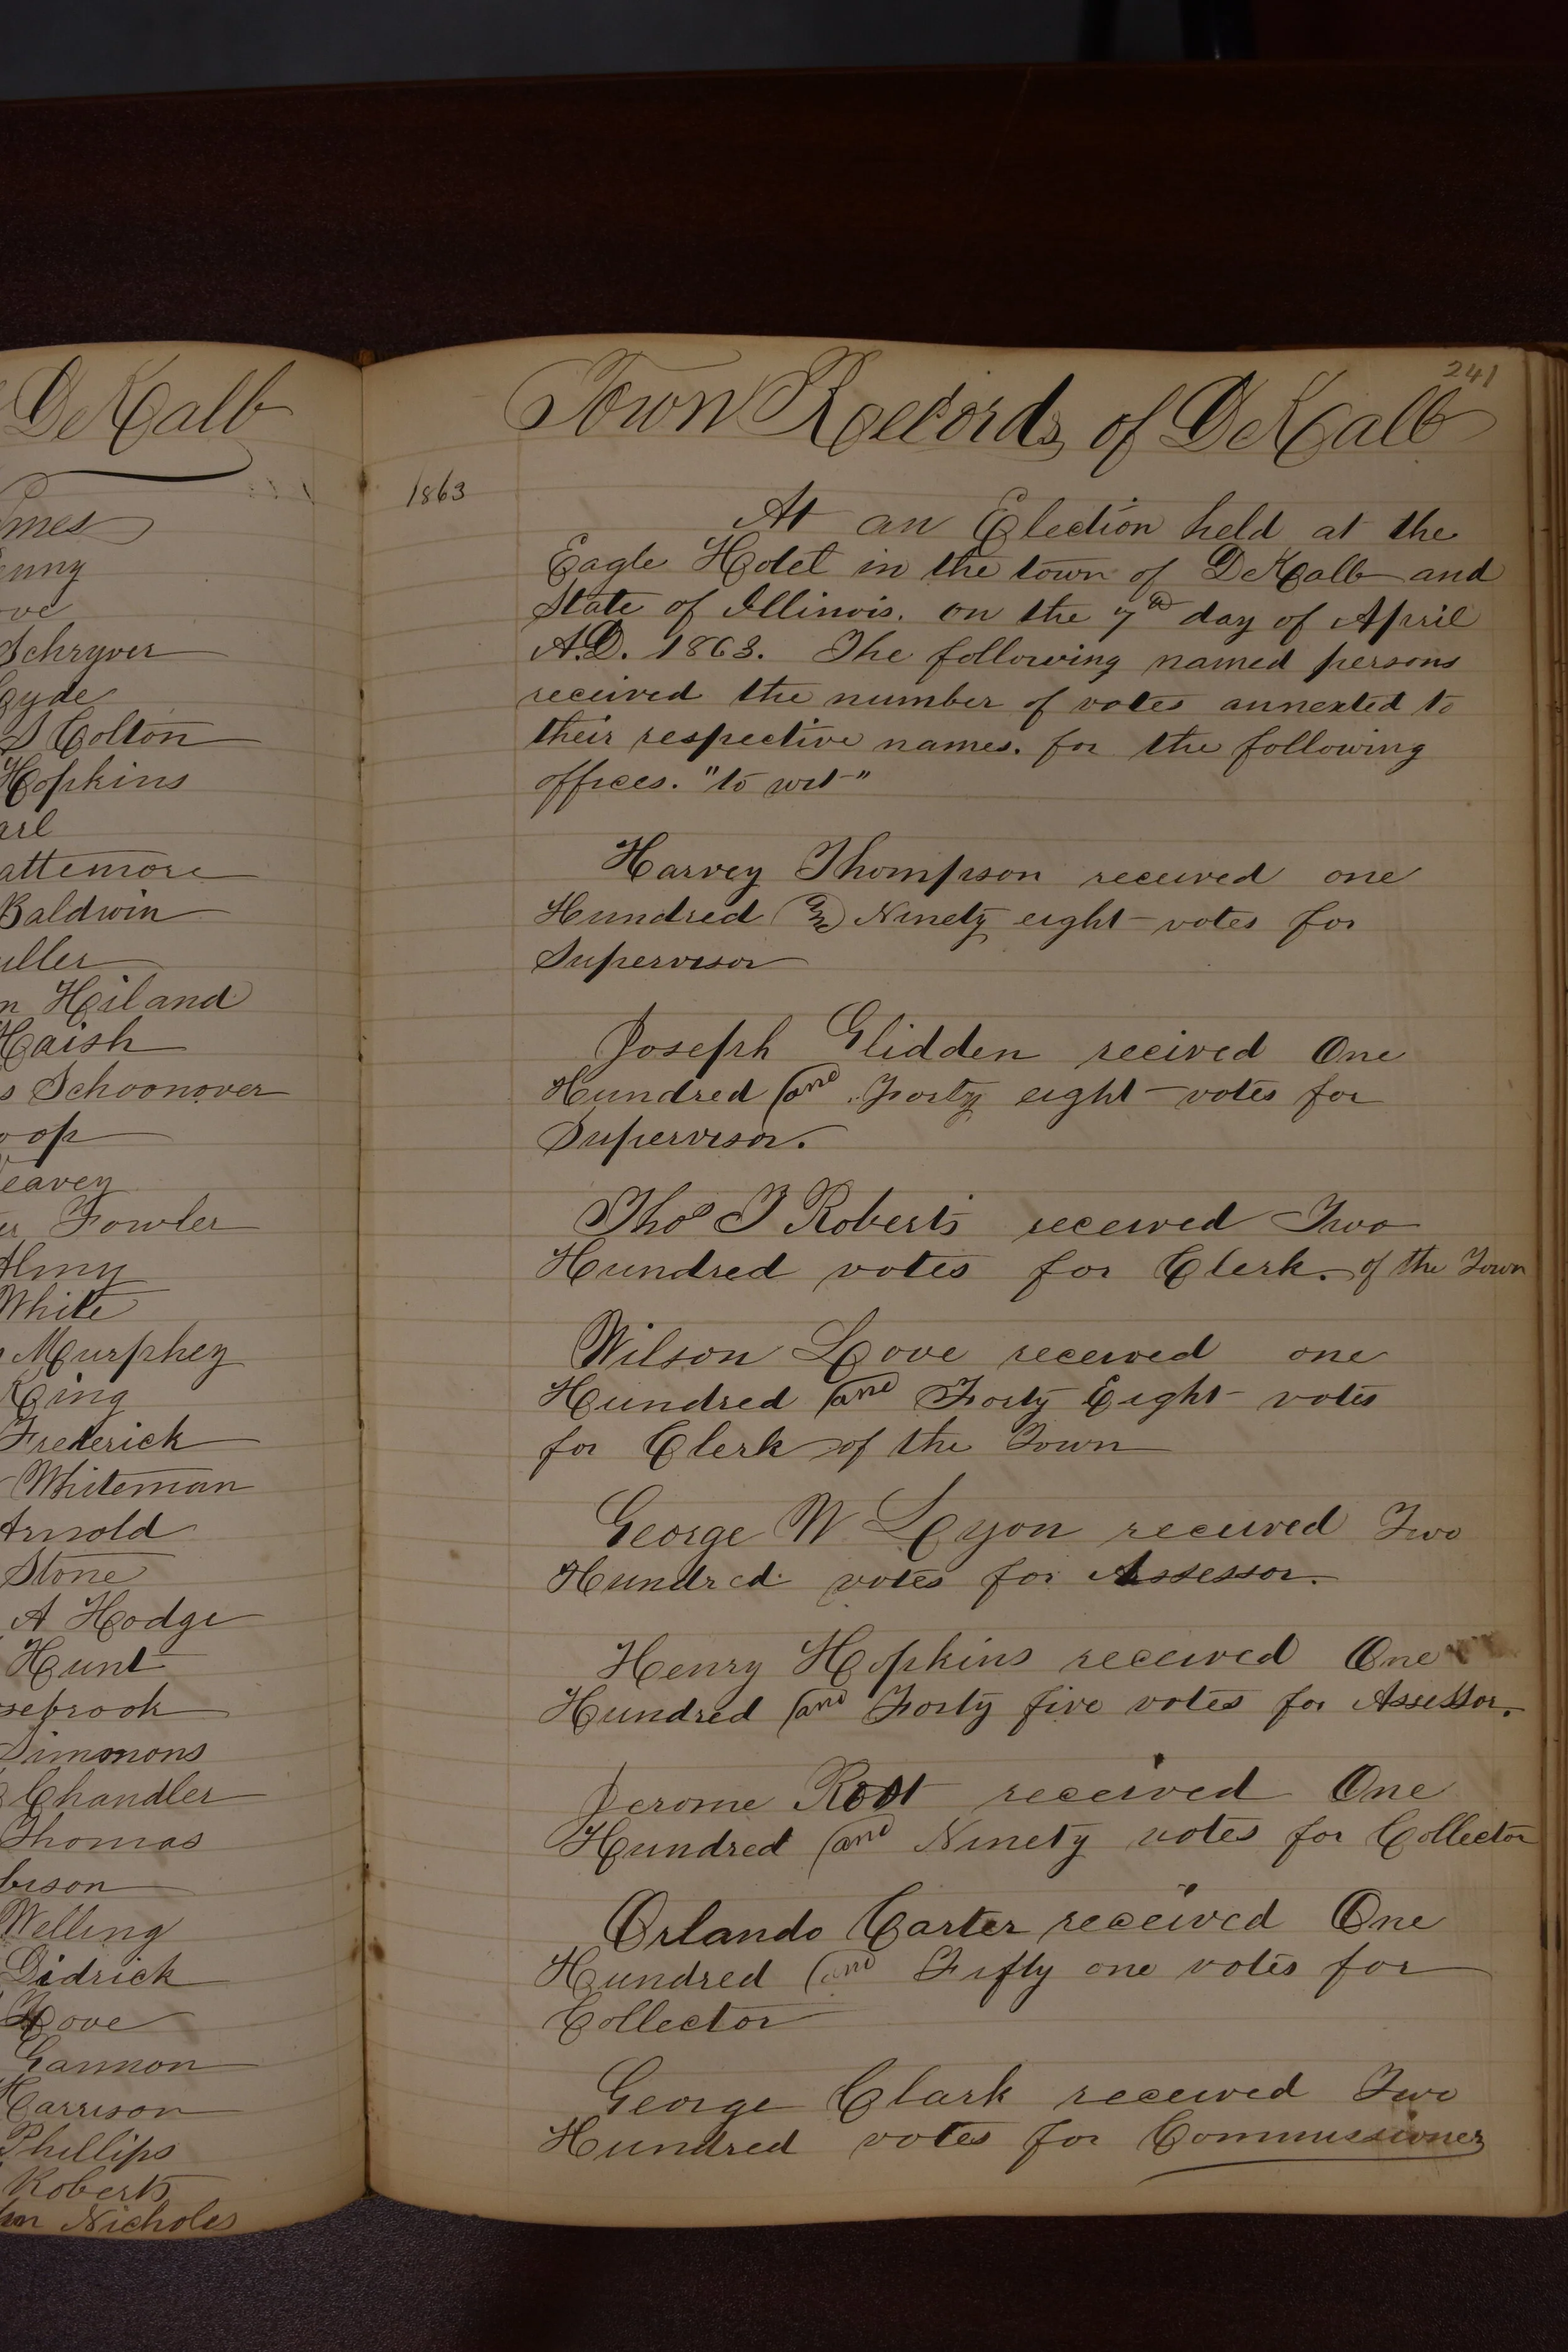 DeKalb
Schryver
Colton
Hopkins
Baldwin
Hiland
Haish
Schoonover
Fowler
White
Murphey
King
Frederick
Whiteman
Arnold
Stone
A Hodge
Hunt
Simmons
Chandler
Thomas
Welling
Didrick
Love
Gannon
Harrison
Phillips
Roberts
Nicholes
241
Town Records of DeKalb
1863
At an Election held at the
Eagle Hotel in the town of DeKalb and
State of Illinois. on the 7th day of April
A.D. 1863. The following named persons
received the number of votes annexted to
their respective names. for the following
offices. "to wit"
Harvey Thompson received one
Hundred and Ninety eight votes for
Supervisor
Joseph Glidden reeived One
Hundred and Forty eight votes for
Supervisor.
Thos J Roberts received Two
Hundred votes for Clerk. of the Town
Wilson Love received one
Hundred and Forty Eight votes
for Clerk of the Town
George W Lyon received Two
Hundred votes for Assessor.
Henry Hopkins received One
Hundred and Forty five votes for Assessor.
Jerome Root received One
Hundred and Ninety votes for Collector
Orlando Carter received One
Hundred and Fifty one votes for
Collector
George Clark received Two
Hundred votes for Commissioner